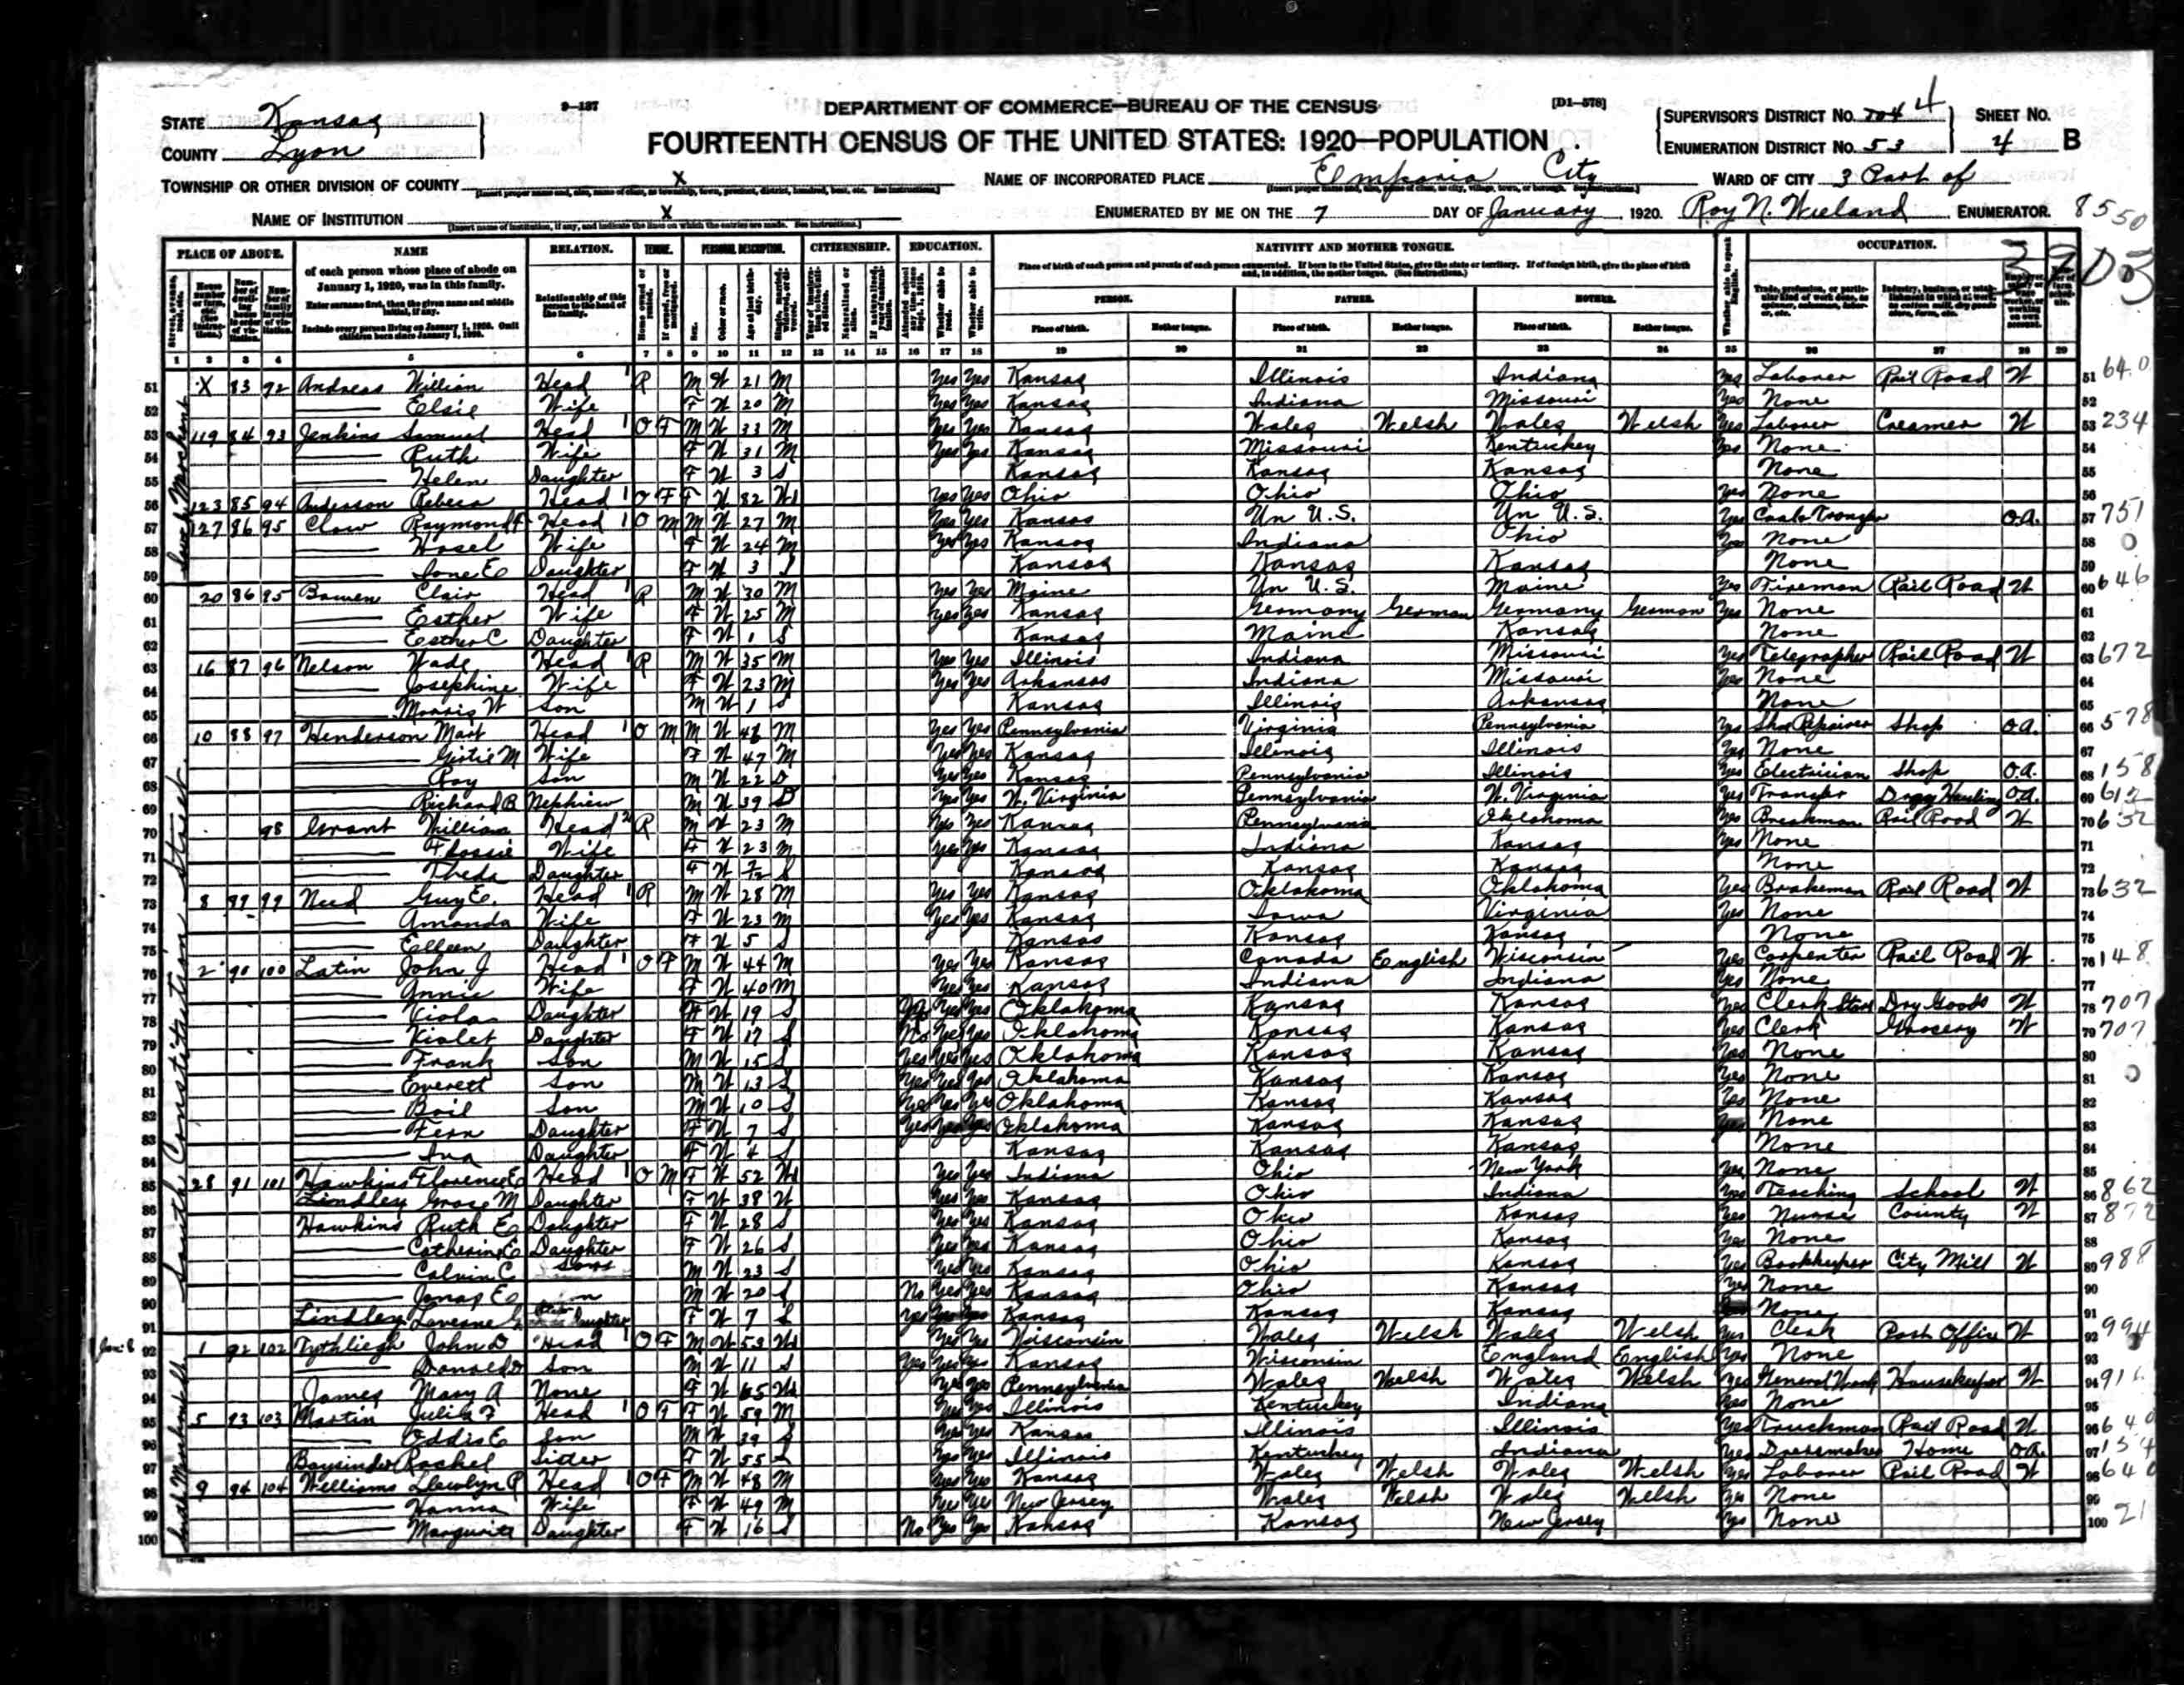 9-137
DEPARTMENT OF COMMERCE—BUREAU OF THE CENSUS
[D1-578]
STATE Kansas
COUNTY Lyon
FOURTEENTH CENSUS OF THE UNITED STATES: 1920—POPULATION
SUPERVISOR'S DISTRICT No. 4
ENUMERATION DISTRICT No. 53
SHEET No. 4 B
TOWNSHIP OR OTHER DIVISION OF COUNTY X
NAME OF INCORPORATED PLACE Emporia City
WARD OF CITY 3 Part of
NAME OF INSTITUTION X
ENUMERATED BY ME ON THE 7 DAY OF January, 1920. Roy N. Wieland ENUMERATOR. 8550
PLACE OF ABODE. NAME RELATION. TENURE. PERSONAL DESCRIPTION. CITIZENSHIP. EDUCATION. NATIVITY AND MOTHER TONGUE. OCCUPATION.
of each person whose place of abode on January 1, 1920, was in this family.
Enter surname first, then the given name and middle initial, if any.
Include every person living on January 1, 1920. Omit children born since January 1, 1920.
Relationship of this person to the head of the family.
Place of birth of each person and parents of each person enumerated. If born in the United States, give the state or territory. If of foreign birth, give the place of birth and, in addition, the mother tongue. (See Instructions.)
PERSON. FATHER. MOTHER.
Place of birth. Mother tongue. Place of birth. Mother tongue. Place of birth. Mother tongue.
1 2 3 4 5 6 7 8 9 10 11 12 13 14 15 16 17 18 19 20 21 22 23 24 25 26 27 28 29
51 X 83 92 Andreas William Head R M W 21 M Yes Yes Kansas Illinois Indiana Yes Laborer Rail Road W 51 640
52 Elsie Wife F W 20 M Yes Yes Kansas Indiana Missouri Yes None 52
53 119 84 93 Jenkins Samuel Head O F M W 33 M Yes Yes Kansas Wales Welsh Wales Welsh Yes Laborer Creamer W 53 234
54 Ruth Wife F W 31 M Yes Yes Kansas Missouri Kentucky Yes None 54
55 Helen Daughter F W 3 S Kansas Kansas Kansas None 55
56 123 85 94 Anderson Rebeca Head O F F W 82 Wd Yes Yes Ohio Ohio Ohio Yes None 56
57 127 86 95 Clow Raymond F Head O M M W 27 M Yes Yes Kansas Un U.S. Un U.S. Yes O.A. 57 751
58 Hasel Wife F W 24 M Yes Yes Kansas Indiana Ohio Yes None 58 0
59 Ione E Daughter F W 3 S Kansas Kansas Kansas None 59
60 20 86 95 Bowen Clair Head R M W 30 M Yes Yes Maine Un U.S. Maine Yes Fireman Rail Road W 60 646
61 Esther Wife F W 25 M Yes Yes Kansas Germany German Germany German Yes None 61
62 Esther C Daughter F W 1 S Kansas Maine Kansas None 62
63 16 87 96 Nelson Wade Head R M W 35 M Yes Yes Illinois Indiana Missouri Yes Telegrapher Rail Road W 63 672
64 Josephine Wife F W 23 M Yes Yes Arkansas Indiana Missouri Yes None 64
65 Morris W Son M W 1 S Kansas Illinois Arkansas None 65
66 10 88 97 Henderson Mart Head O M M W M Yes Yes Pennsylvania Virginia Pennsylvania Yes Shoe Repairer Shop O.A. 66 578
67 Girtie M Wife F W 47 M Yes Yes Kansas Illinois Illinois Yes None 67
68 Roy Son M W 22 D Yes Yes Kansas Pennsylvania Illinois Yes Electrician Shop O.A. 68 158
69 Richard B Nephiew M W 39 D Yes Yes W. Virginia Pennsylvania W. Virginia Yes Transfer Dray Hauling O.A. 69 612
70 98 Grant William Head R M W 23 M Yes Yes Kansas Pennsylvania Oklahoma Yes Breakman Rail Road W 70 632
71 Flossie Wife F W 23 M Yes Yes Kansas Indiana Kansas Yes None 71
72 Theda Daughter F W S Kansas Kansas Kansas None 72
73 8 89 99 Need Guy E. Head R M W 28 M Yes Yes Kansas Oklahoma Oklahoma Yes Brakeman Rail Road W 73 632
74 Amanda Wife F W 23 M Yes Yes Kansas Iowa Virginia Yes None 74
75 Eileen Daughter F W 5 S Kansas Kansas Kansas None 75
76 2 90 100 Latin John J Head O F M W 44 M Yes Yes Kansas Canada English Wisconsin Yes Carpenter Rail Road W 76 148
77 Annie Wife F W 40 M Yes Yes Kansas Indiana Indiana Yes None 77
78 Viola Daughter F W 19 S Yes Yes Oklahoma Kansas Kansas Yes Clerk Store Dry Goods W 78 707
79 Violet Daughter F W 17 S No Yes Yes Oklahoma Kansas Kansas Yes Clerk Grocery W 79 707
80 Frank Son M W 15 S Yes Yes Yes Oklahoma Kansas Kansas Yes None 80
81 Everett Son M W 13 S Yes Yes Yes Oklahoma Kansas Kansas Yes None 81 0
82 Boil Son M W 10 S Yes Yes Yes Oklahoma Kansas Kansas Yes None 82
83 Fern Daughter F W 7 S Yes Yes Yes Oklahoma Kansas Kansas None 83
84 Ina Daughter F W 4 S Kansas Kansas Kansas None 84
85 28 91 101 Hawkins Florence E Head O M F W 52 Wd Yes Yes Indiana Ohio New York Yes None 85
86 Lindley Grace M Daughter F W 38 Yes Yes Kansas Ohio Indiana Yes Teaching School W 86 862
87 Hawkins Ruth E Daughter F W 28 S Yes Yes Kansas Ohio Kansas Yes Nurse County W 87 872
88 Catherine E Daughter F W 26 S Yes Yes Kansas Ohio Kansas Yes None 88
89 Calvin C Sons M W 23 S Yes Yes Kansas Ohio Kansas Yes Bookkeeper City Mill W 89 988
90 Jonas E M W 20 S No Yes Yes Kansas Ohio Kansas Yes None 90
91 Lindley Laverne Daughter F W 7 S Yes Kansas Kansas Kansas None 91
92 1 92 102 Tythliegh John D Head O F M W 53 Wd Yes Yes Wisconsin Wales Welsh Wales Welsh Yes Clerk Post Office W 92 994
93 Donald D Son M W 11 S Yes Yes Yes Kansas Wisconsin England English Yes None 93
94 James Mary A None F W 65 Wd Yes Yes Pennsylvania Wales Welsh Wales Welsh Yes General Work Housekeeper W 94
95 5 93 103 Martin Julia F Head O F F W 59 M Yes Yes Illinois Kentucky Indiana Yes None 95
96 Oddis E Son M W 39 S Yes Yes Kansas Illinois Illinois Yes Truckman Rail Road W 96 640
97 Baysinder Rachel Sister F W 55 S Yes Yes Illinois Kentucky Indiana Yes Dressmaker Home O.A. 97 154
98 9 94 104 Williams Llewlyn P Head O F M W 48 M Yes Yes Kansas Wales Welsh Wales Welsh Yes Laborer Rail Road W 98 640
99 Hanna Wife F W 49 M Yes Yes New Jersey Wales Welsh Wales Welsh Yes None 99
100 Margurite Daughter F W 16 S No Yes Yes Kansas Kansas New Jersey Yes None 100 21
South Constitution Street